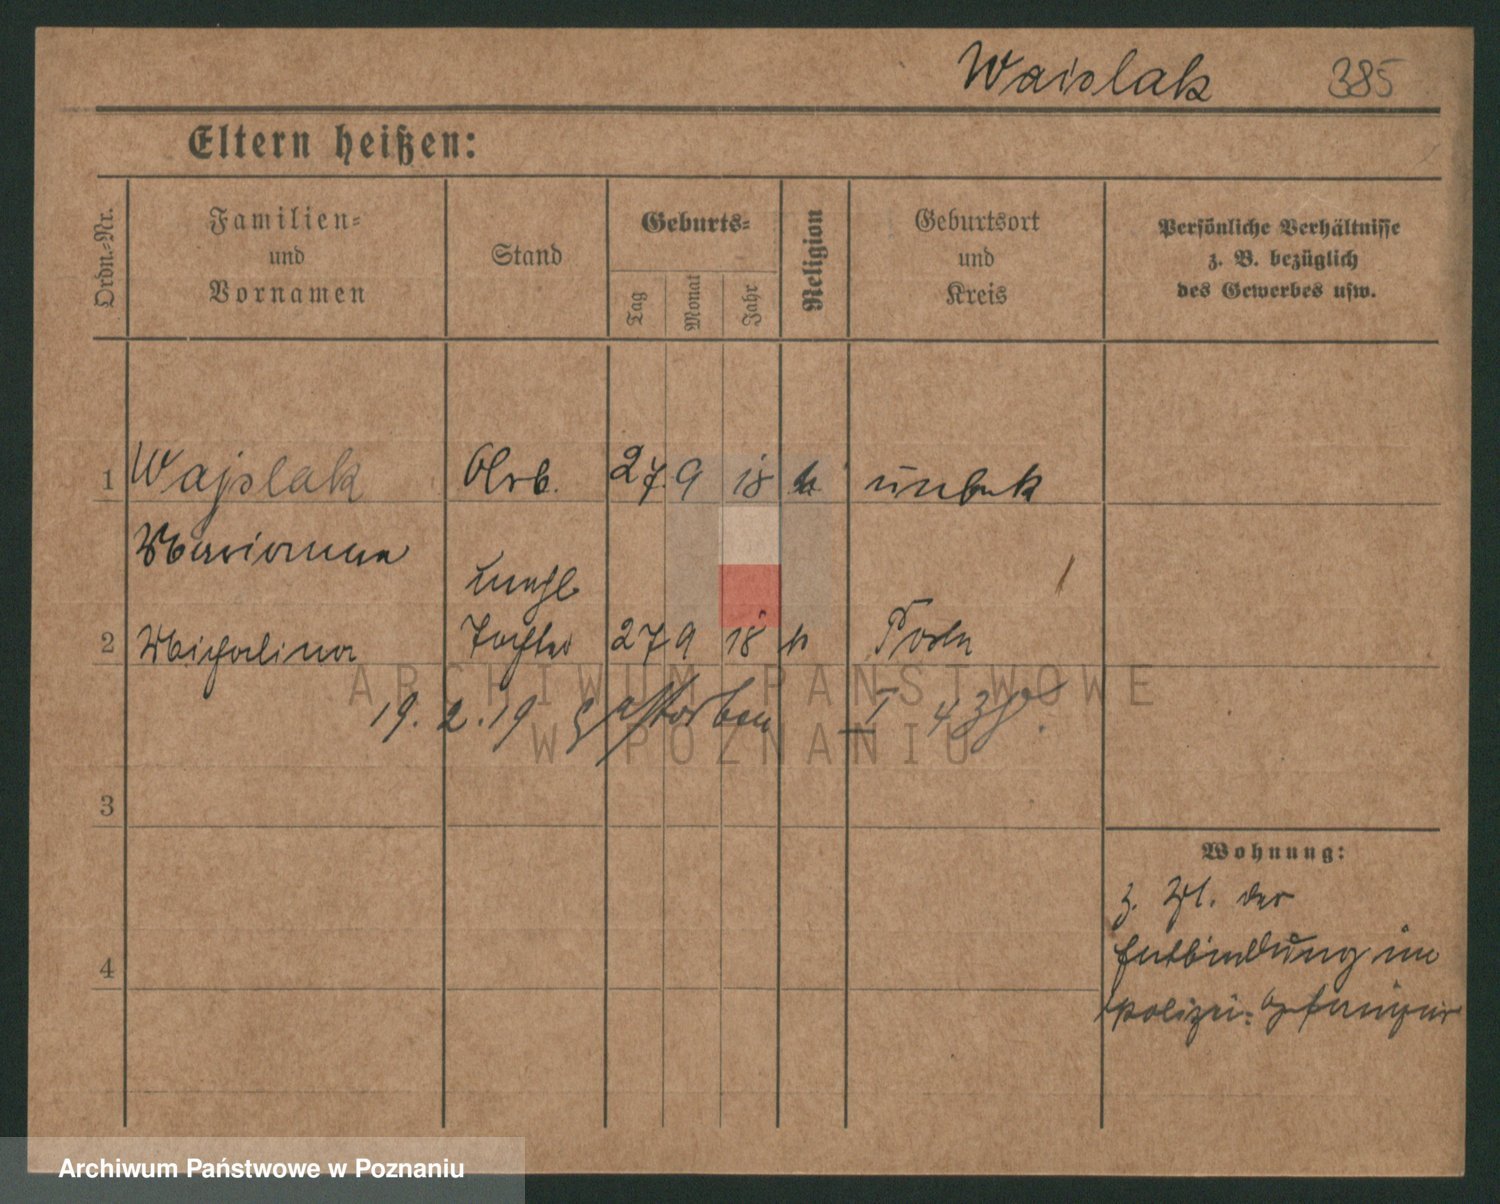 Waislak 385
Eltern heißen:
Ordn.-Nr.
Familien-
und
Vornamen
Stand
Geburts-
Tag
Monat
Jahr
Religion
Geburtsort
und
Kreis
Persönliche Verhältnisse
z. B. bezüglich
des Gewerbes usw.
1 Wajslak Arb. 27. 9 18 k unbek
Marianna
unehl
2 Michalina Tochter 27 9 18 k Posen
19. 2. 19 gestorben
3
Wohnung:
z. Zt. der
Entbindung im
4
Polizei-Gefängnis
ARCHIWUM PAŃSTWOWE
W POZNANIU
Archiwum Państwowe w Poznaniu